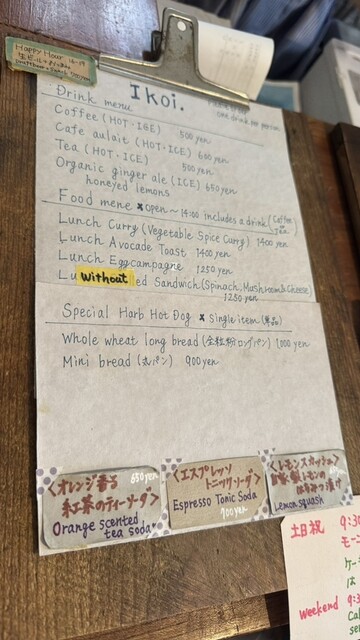 Happy Hour 16-19
Ikoi.
one drink per person
Drink menu
Coffee (HOT・ICE) 500 yen
Cafe aulait (HOT・ICE) 600 yen
Tea (HOT・ICE) 500 yen
Organic ginger ale (ICE) 650 yen
honeyed lemons
Food mene ×open~14:00 includes a drink (Coffee
Tea)
Lunch Curry (Vegetable Spice Curry) 1400 yen
Lunch Avocade Toast 1400 yen
Lunch Eggcampagne 1250 yen
Lu without ed Sandwich (Spinach, Mushroom & Cheese)
1250 yen
Special Harb Hot Dog × single item (単品)
Whole wheat long bread (全粒粉ロングパン) 1,000 yen
Mini bread (丸パン) 900 yen
650yen
<オレンジ香る
紅茶のティーソーダ>
Orange scented
tea soda
<エスプレッソ
トニックソーダ>
Espresso Tonic Soda
700yen
<レモンスカッシュ>
自家製レモンの
はちみつ漬け
Lemon squash
土日祝 9:3
モー
ケー
は
weekend 9:3
Cal
se